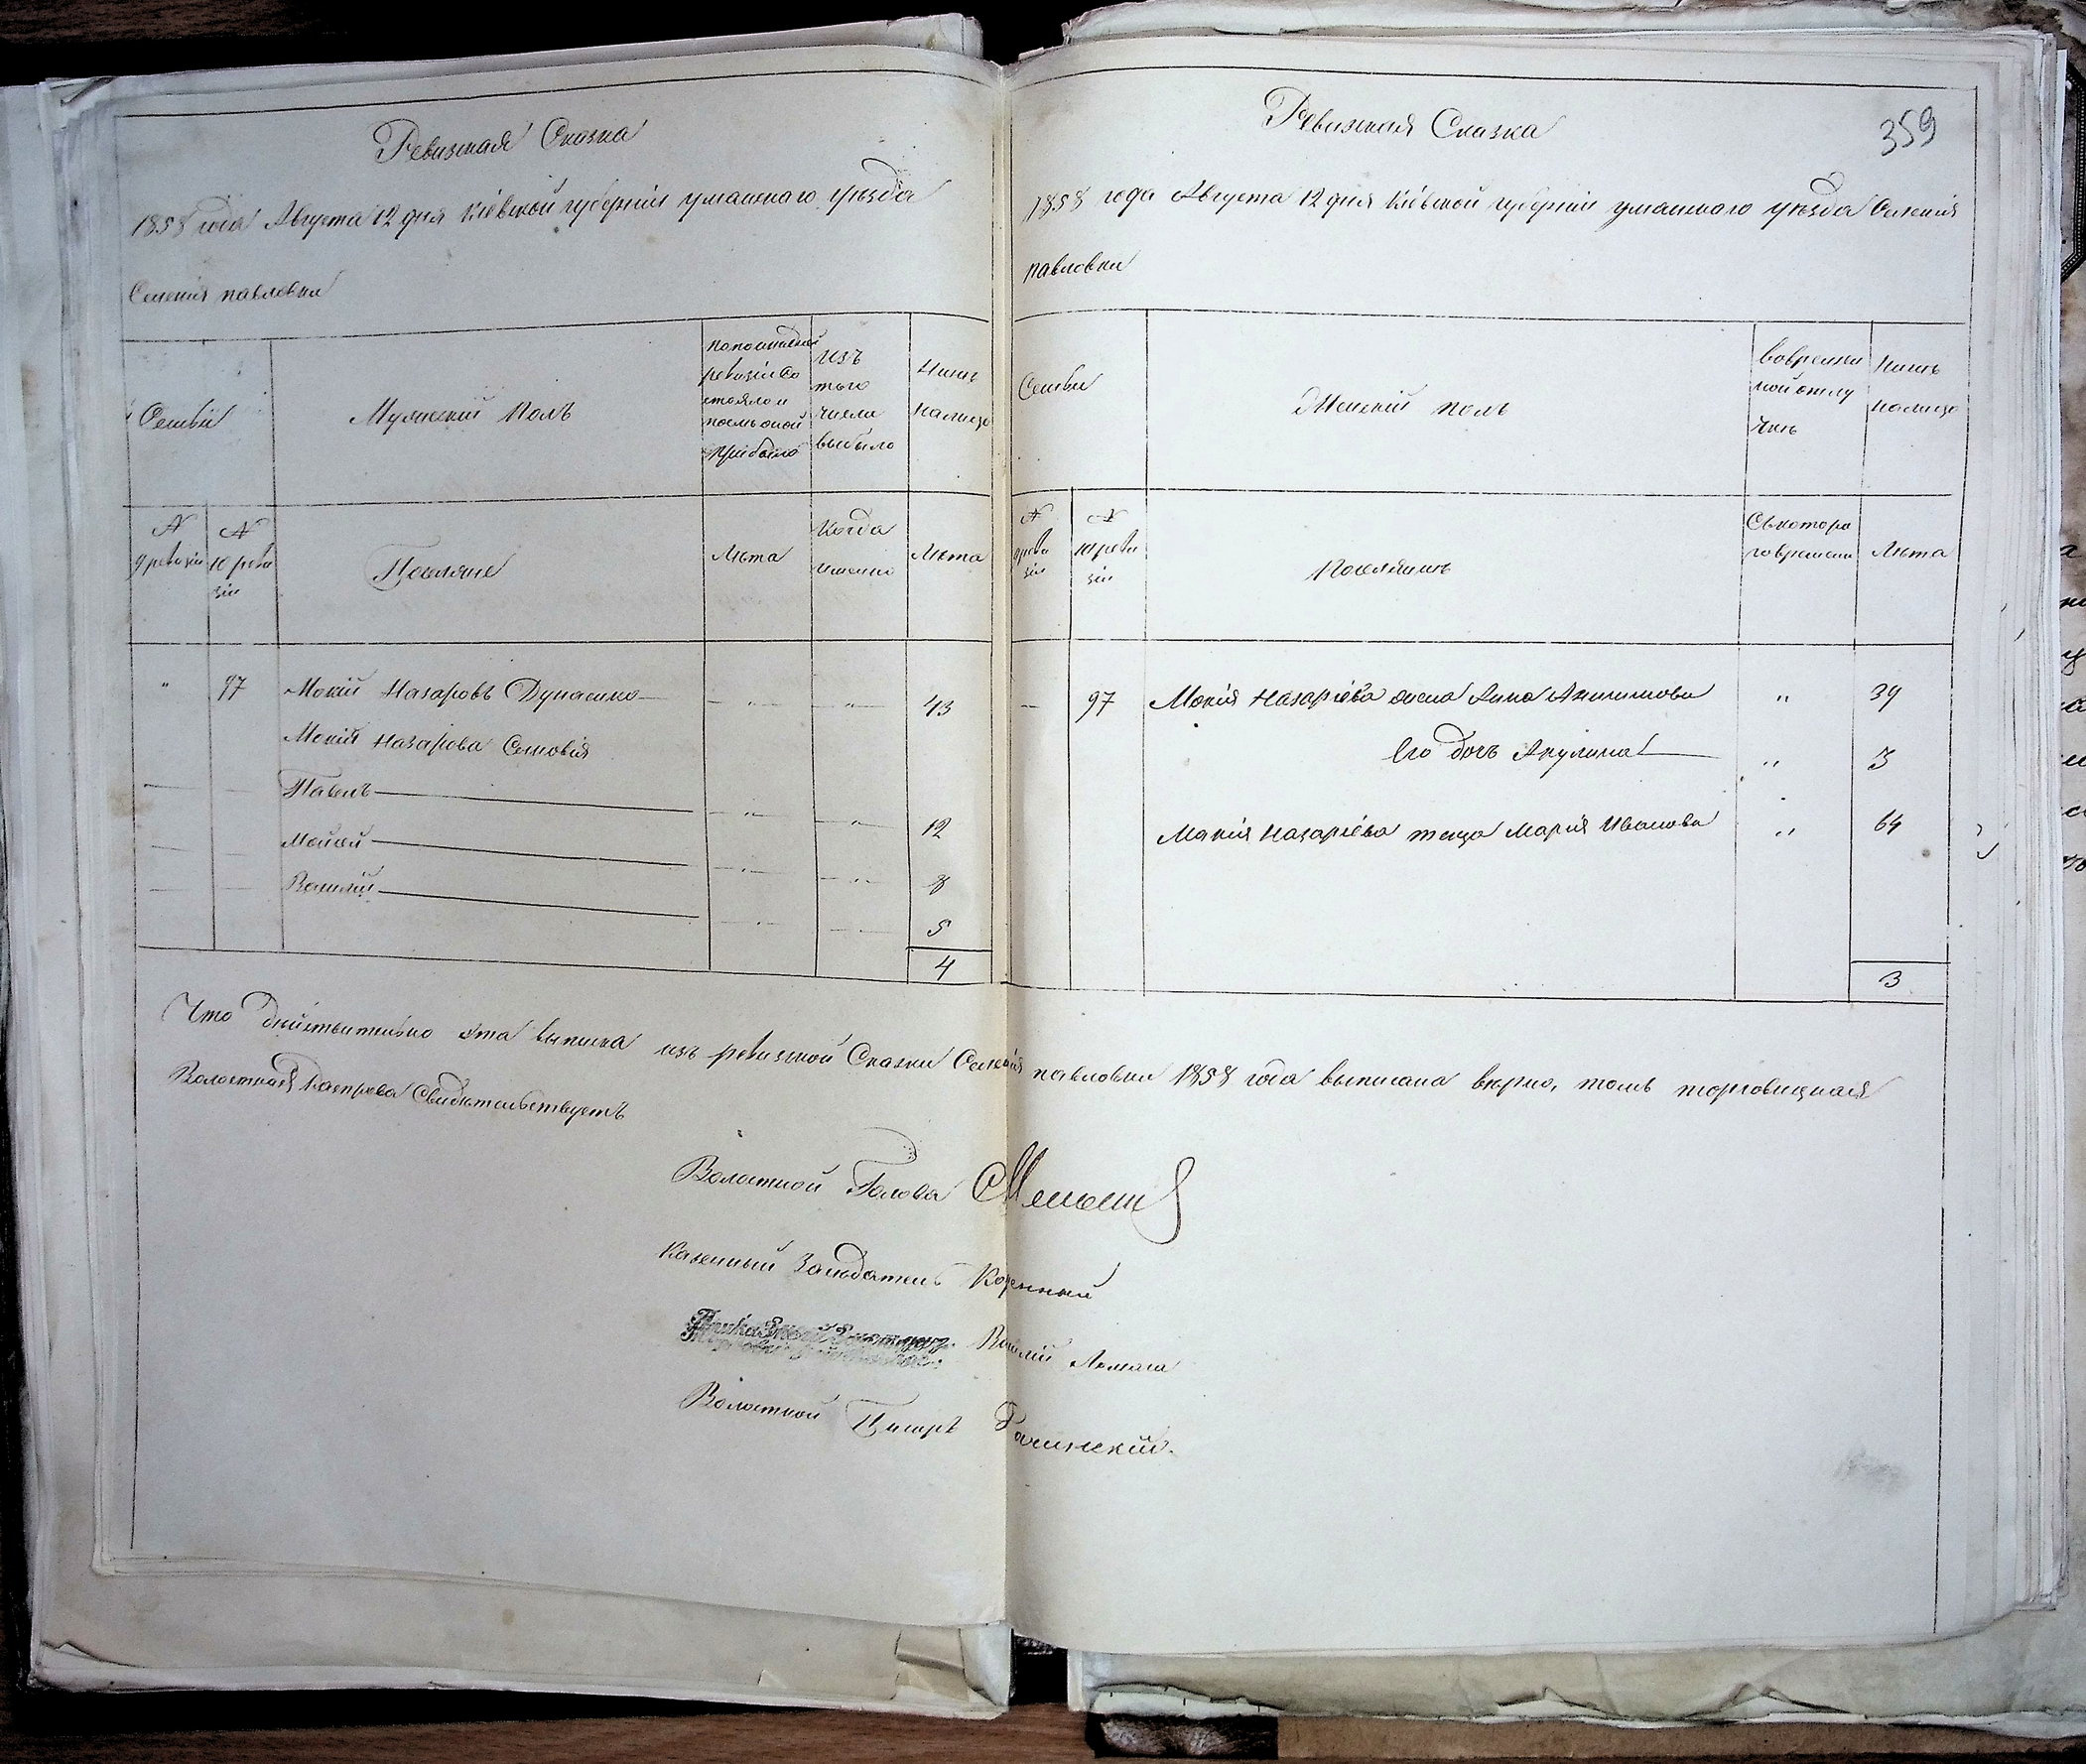 Ревизкая Сказка
1858 года Августа 12 дня Кіевской губерніи уманскаго уѣзда
Селенія павловки
Семьи
Мужескій Полъ
По последней ревизіи состояло и после оной прибыло
Изъ того числа выбыло
Нынѣ налицо
N 9 ревизіи
N 10 ревизіи
Поселяне
Лѣта
Когда именно
Лѣта
" 97 Мокій Назаровъ Дунаенко 43
Мокія Назарова Сыновія
Павелъ 12
Мойсей 8
Василій 5
4
359
Ревизкая Сказка
1858 года Августа 12 дня Кіевской губерніи уманскаго уѣзда Селенія
павловки
Семьи
Женскій полъ
Во временной отлучкѣ
Нынѣ налицо
N 9 ревизіи
N 10 ревизіи
Поселянинъ
Съ котораго времени
Лѣта
97 Мокія Назаріева жена Анна Анисимова " 39
Его дочъ Акулина " 3
Мокія Назаріева теща Марія Иванова " 64
3
Что действительно эта выписка изъ ревизкой Сказки Селенія павловки 1858 года выписана верно, томъ торговицкая
Волостная Расправа Свидетельствуетъ
Волостной Голова
Казенный Заседатель
Василій
Волостной Писарь